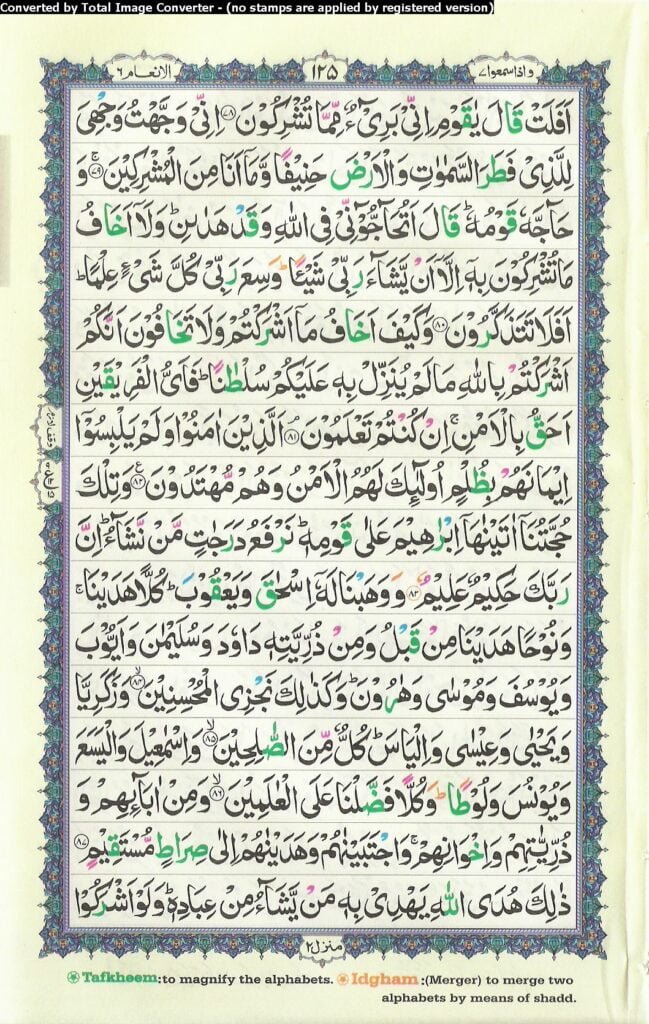 Converted by Total Image Converter - (no stamps are applied by registered version)
واذاسمعوا۷
۱۲۵
الانعام ۶
اَفَلَتْ قَالَ يٰقَوْمِ اِنِّىْ بَرِىْٓءٌ مِّمَّا تُشْرِكُوْنَ ﴿۷۸﴾ اِنِّىْ وَجَّهْتُ وَجْهِىَ
لِلَّذِىْ فَطَرَ السَّمٰوٰتِ وَالْاَرْضَ حَنِيْفًا وَّمَاۤ اَنَا مِنَ الْمُشْرِكِيْنَ ۚ﴿۷۹﴾ وَ
حَآجَّهٗ قَوْمُهٗ ؕ قَالَ اَتُحَآجُّوْٓنِّىْ فِى اللّٰهِ وَقَدْ هَدٰٮنِ ؕ وَلَاۤ اَخَافُ
مَا تُشْرِكُوْنَ بِهٖۤ اِلَّاۤ اَنْ يَّشَآءَ رَبِّىْ شَيْئًا ؕ وَسِعَ رَبِّىْ كُلَّ شَىْءٍ عِلْمًا ؕ
اَفَلَا تَتَذَكَّرُوْنَ ﴿۸۰﴾ وَكَيْفَ اَخَافُ مَاۤ اَشْرَكْتُمْ وَلَا تَخَافُوْنَ اَنَّكُمْ
اَشْرَكْتُمْ بِاللّٰهِ مَا لَمْ يُنَزِّلْ بِهٖ عَلَيْكُمْ سُلْطٰنًا ؕ فَاَىُّ الْفَرِيْقَيْنِ
اَحَقُّ بِالْاَمْنِ ۚ اِنْ كُنْتُمْ تَعْلَمُوْنَ ۘ﴿۸۱﴾ اَلَّذِيْنَ اٰمَنُوْا وَلَمْ يَلْبِسُوْۤا
اِيْمَانَهُمْ بِظُلْمٍ اُولٰٓئِكَ لَهُمُ الْاَمْنُ وَهُمْ مُّهْتَدُوْنَ ﴿۸۲﴾ وَتِلْكَ
حُجَّتُنَاۤ اٰتَيْنٰهَاۤ اِبْرٰهِيْمَ عَلٰى قَوْمِهٖ ؕ نَرْفَعُ دَرَجٰتٍ مَّنْ نَّشَآءُ ؕ اِنَّ
رَبَّكَ حَكِيْمٌ عَلِيْمٌ ﴿۸۳﴾ وَوَهَبْنَا لَهٗۤ اِسْحٰقَ وَيَعْقُوْبَ ؕ كُلًّا هَدَيْنَا ۚ
وَنُوْحًا هَدَيْنَا مِنْ قَبْلُ وَمِنْ ذُرِّيَّتِهٖ دَاوٗدَ وَسُلَيْمٰنَ وَاَيُّوْبَ
وَيُوْسُفَ وَمُوْسٰى وَهٰرُوْنَ ؕ وَكَذٰلِكَ نَجْزِى الْمُحْسِنِيْنَ ۙ﴿۸۴﴾ وَزَكَرِيَّا
وَيَحْيٰى وَعِيْسٰى وَاِلْيَاسَ ؕ كُلٌّ مِّنَ الصّٰلِحِيْنَ ۙ﴿۸۵﴾ وَاِسْمٰعِيْلَ وَالْيَسَعَ
وَيُوْنُسَ وَلُوْطًا ؕ وَكُلًّا فَضَّلْنَا عَلَى الْعٰلَمِيْنَ ۙ﴿۸۶﴾ وَمِنْ اٰبَآئِهِمْ وَ
ذُرِّيّٰتِهِمْ وَاِخْوَانِهِمْ ۚ وَاجْتَبَيْنٰهُمْ وَهَدَيْنٰهُمْ اِلٰى صِرَاطٍ مُّسْتَقِيْمٍ ﴿۸۷﴾
ذٰلِكَ هُدَى اللّٰهِ يَهْدِىْ بِهٖ مَنْ يَّشَآءُ مِنْ عِبَادِهٖ ؕ وَلَوْ اَشْرَكُوْا
منزل۲
Tafkheem:to magnify the alphabets. Idgham :(Merger) to merge two
alphabets by means of shadd.